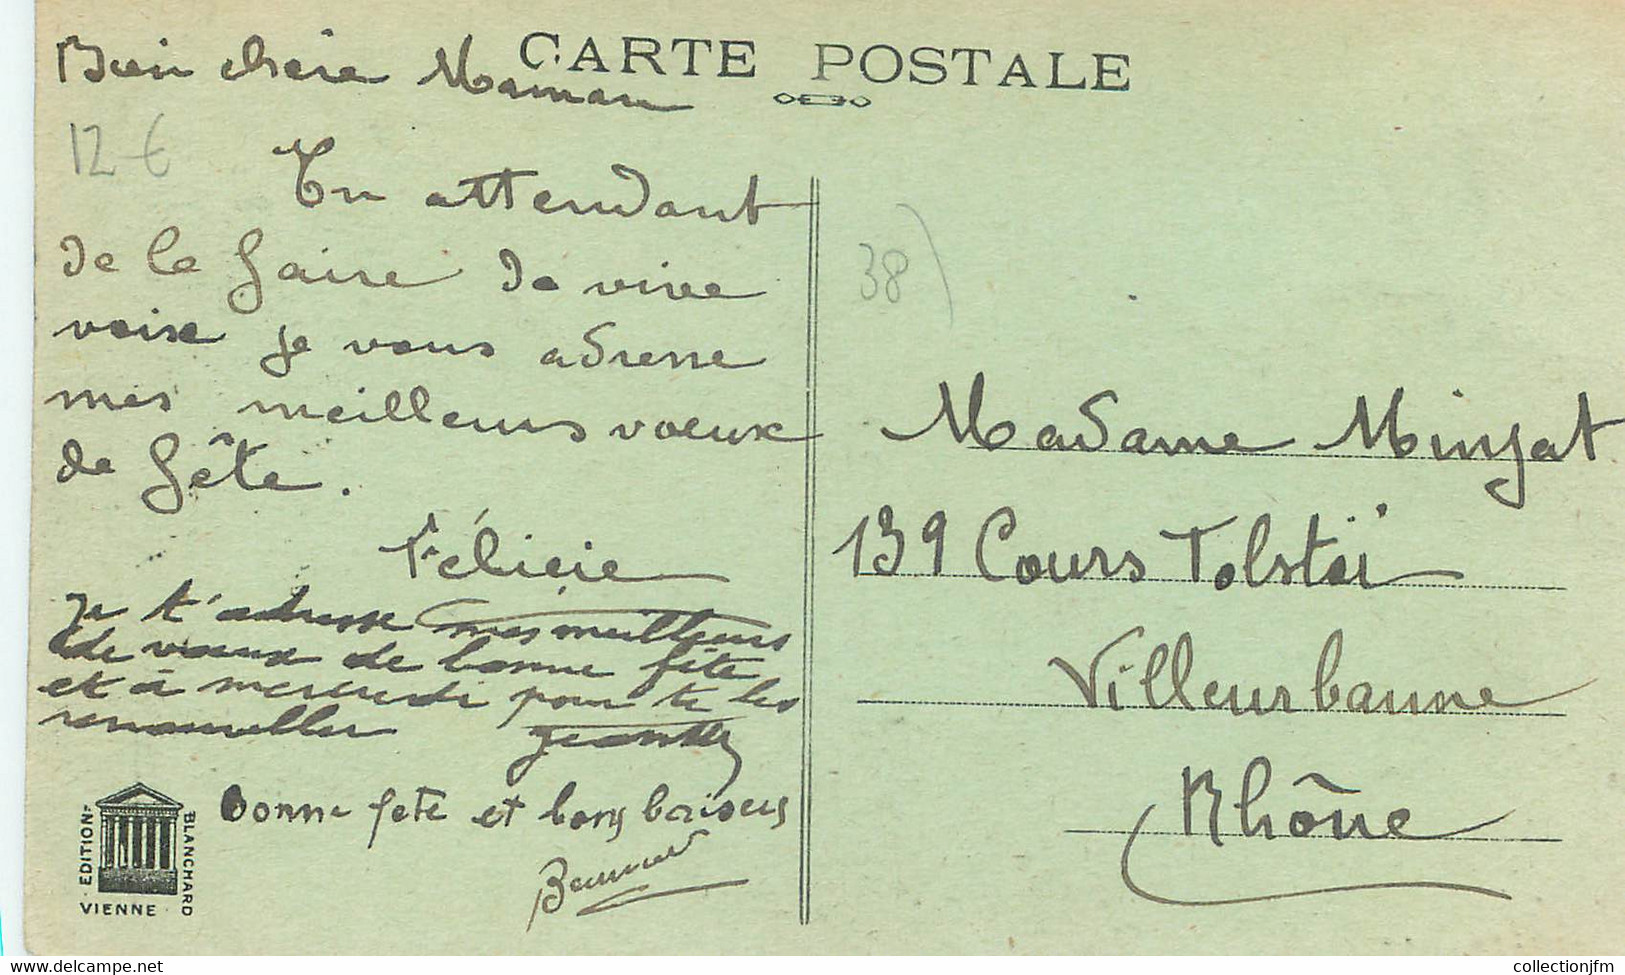 CARTE POSTALE
Bien chère Maman
12 €
En attendant
de le faire de vive
voix je vous adresse
mes meilleurs voeux
de fête.
Félicie
Je t'adresse mes meilleurs
de voeux de bonne fête
et à mercredi pour te les
renouveller
Bonne fete et bons baisers
38)
Madame Minjat
139 Cours Tolstoï
Villeurbanne
Rhône
EDITION
BLANCHARD
VIENNE
www.delcampe.net
collectionjfm